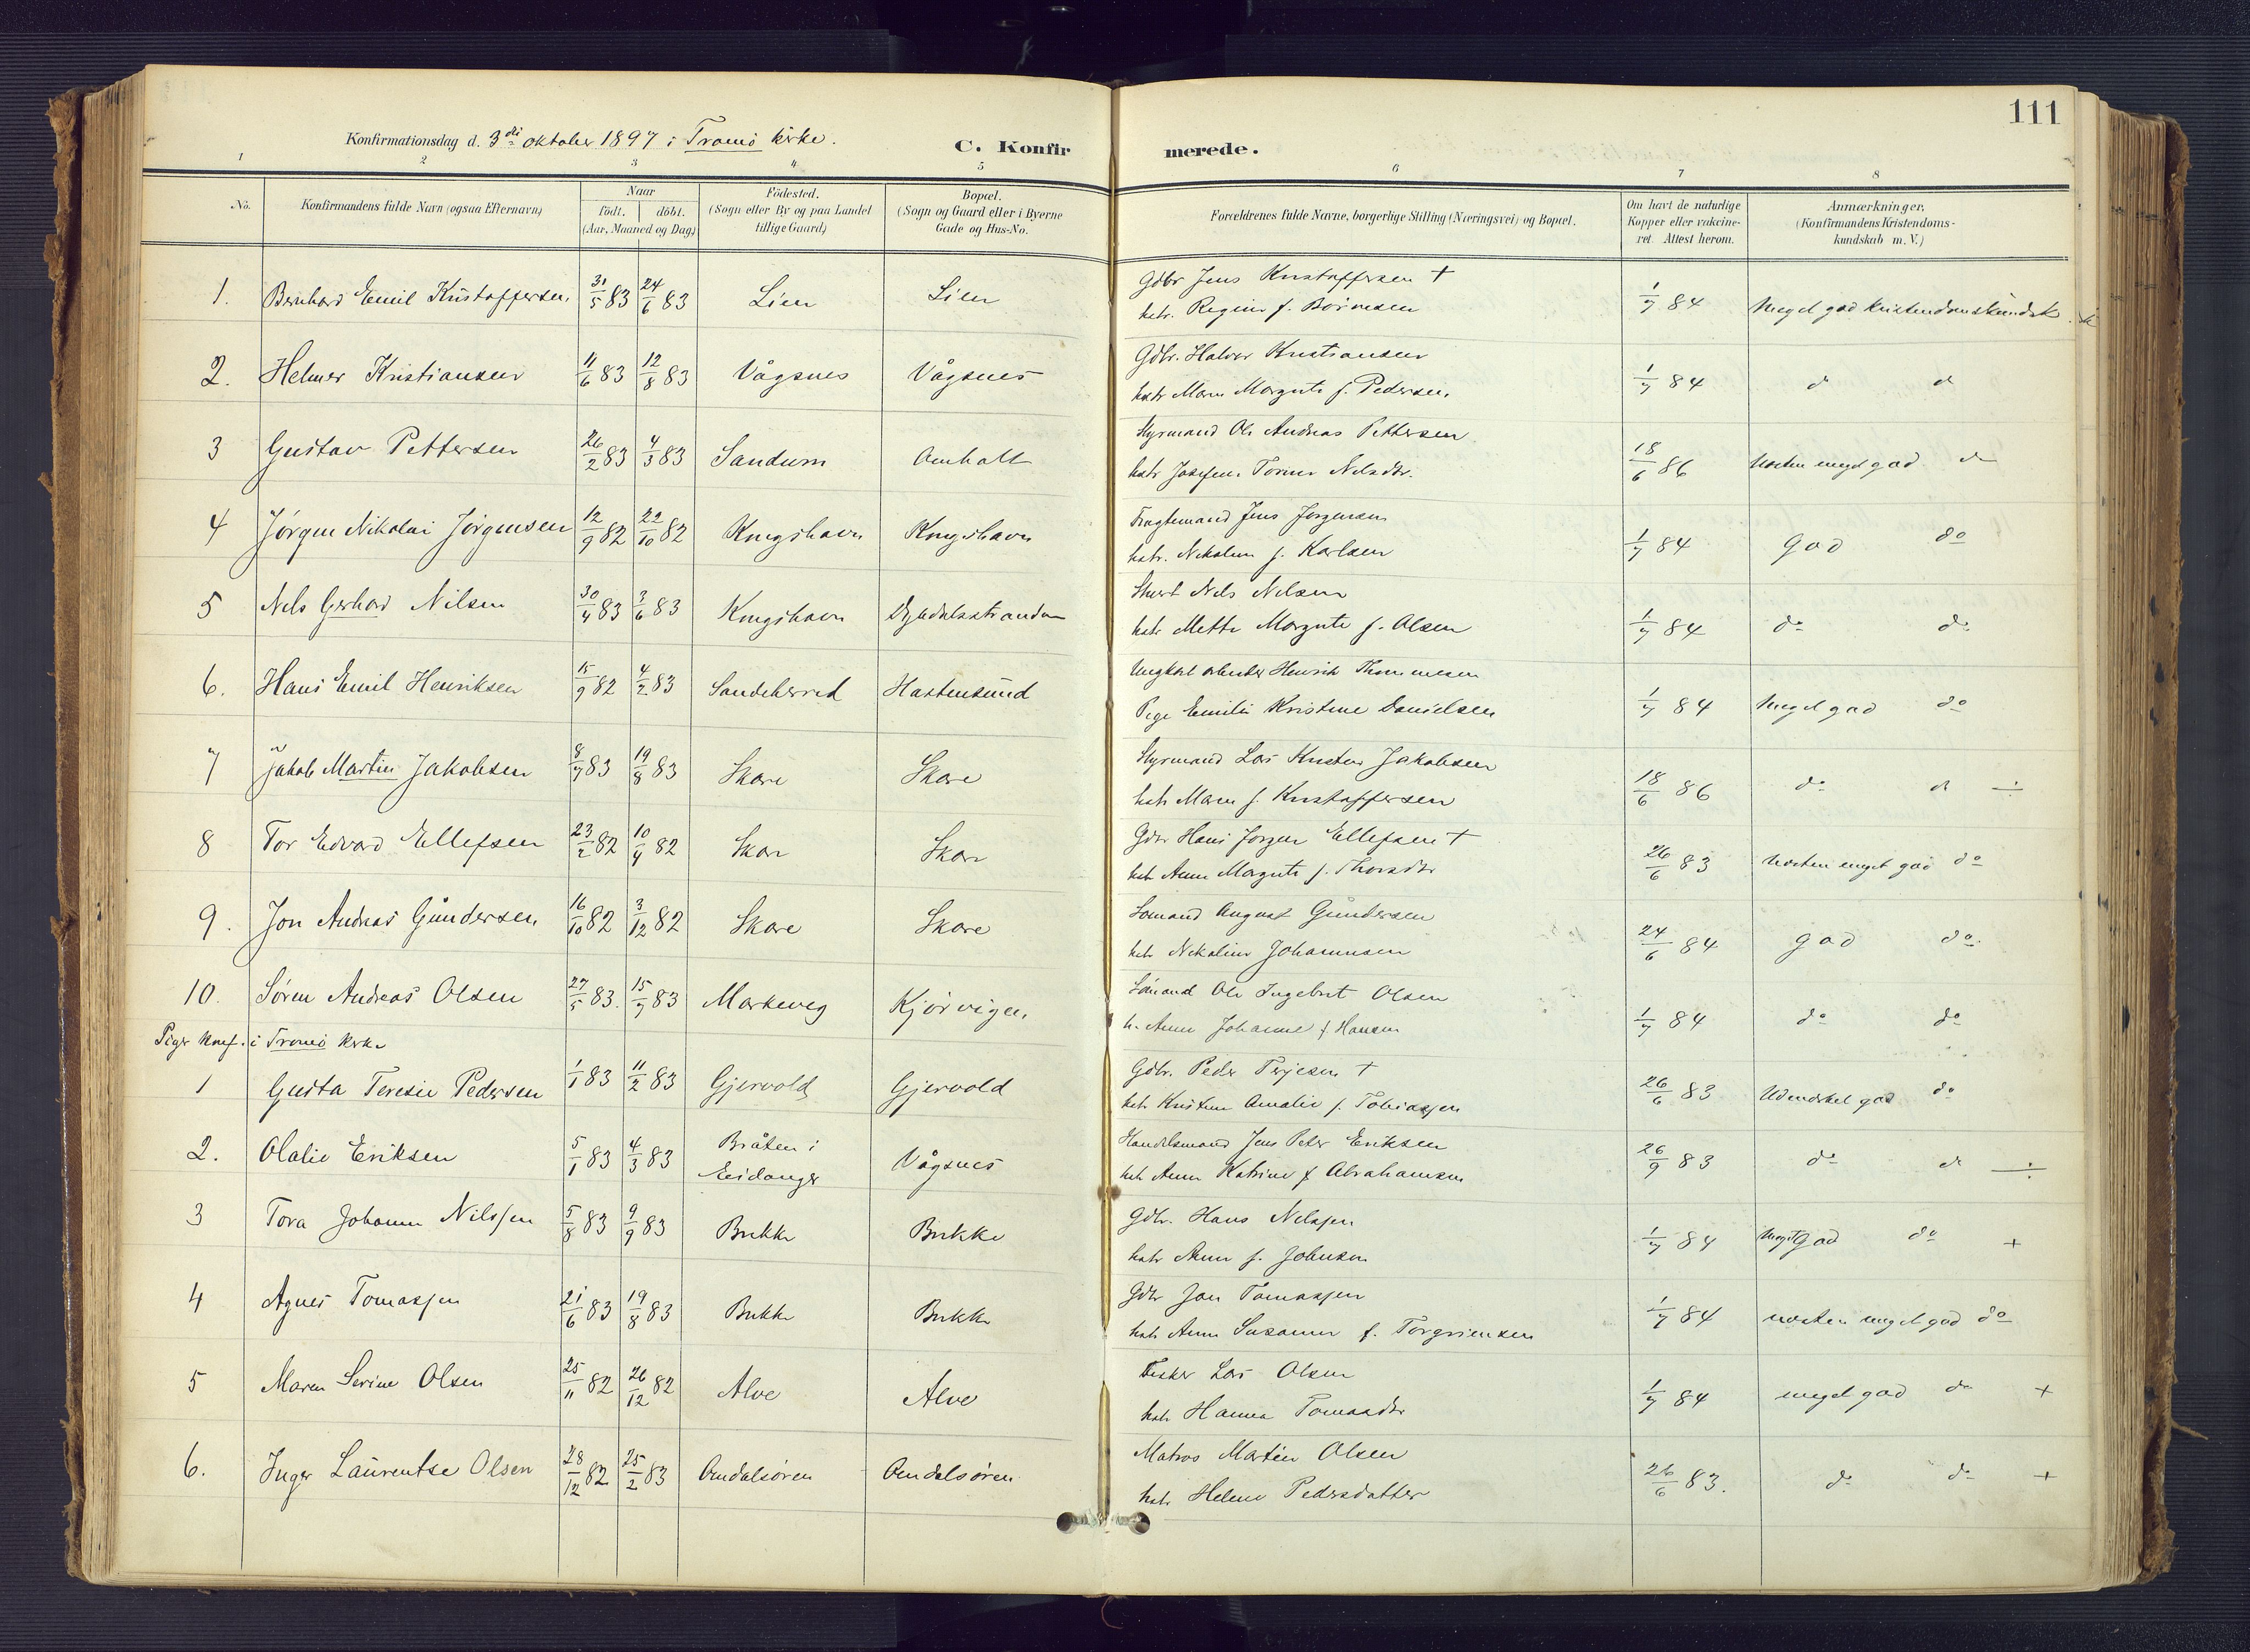 111
Konfirmationsdag d. 3die oktober 1897 i Tromö kirke.
C. Konfirmerede.
1 2 3 4 5 6 7 8
No.
Konfirmandens fulde Navn (ogsaa Efternavn)
Naar
födt. döbt.
(Aar, Maaned og Dag)
Födested.
(Sogn eller By og paa Landet
tillige Gaard)
Bopæl.
(Sogn og Gaard eller i Byerne
Gade og Hus-No.
Forældrenes fulde Navne, borgerlige Stilling (Næringsvei) og Bopæl.
Om havt de naturlige
Kopper eller vakcine-
ret. Attest herom.
Anmærkninger.
(Konfirmandens Kristendoms-
kundskab m. V.)
1. Bernhard Emil Kristoffersen. 31/5 83 24/6 83 Lien Lien
Gdbr Jens Kristoffersen +
hstr. Regine f. 1/7 84 Meget god kristendomskundsk
2. Helmer Kristiansen 11/6 83 12/8 83 Vågsnes Vågsnes
Gdbr. Halvor Kristiansen
hstr Maren Margrete f. Pedersen. 1/7 84 d d
3 Gustav Pettersen 26/2 83 4/3 83 Sandum Omholt
Styrmand Ole Andreas Pettersen
hstr Josefine Torine Nilsdtr. 18/6 86 Næsten meget god d
4 Jörgen Nikolai Jörgensen 12/9 82 22/10 82 Kongshavn Kongshavn
Fragtemand Jens Jorgensen
hstr. Nikoline f. Karlsen 1/7 84 god do
5 Nils Gerhard Nilsen 30/4 83 3/6 83 Kongshavn
Nils Nilsen
hstr Mette Margrete f. Olsen 1/7 84 do do
6. Hans Emil Henriksen 15/9 82 4/2 83 Sandeherred Hastensund
Ungkarl arbeider Henrik Thommesen
Pige Emilie Kristine Danielsen 1/7 84 Meget god do
7 Jakob Martin Jakobsen 8/7 83 19/8 83 Skare Skare
Styrmand Lars Kristen Jakobsen
hstr Maren f. Kristoffersen 18/6 86 do d ÷
8 Tor Edvard Ellefsen 23/2 82 10/4 82 Skare Skare
Gdbr Hans Jörgen Ellefsen +
hstr Anne Margrete f. Thorsdtr 26/6 83 Næsten meget god do
9. Jon Andreas Gundersen 16/10 82 3/12 82 Skare Skare
Sömand August Gundersen
hstr Nikoline Johannesen 24/6 84 god do.
10. Sören Andreas Olsen 27/5 83. 15/7 83 Markeveg Kjörvigen
Sömand Ole Ingebret Olsen
h. Anne Johanne f Hansen 1/7 84 do do
Piger konf. i Tromö kirke
1 Gusta Teresie Pedersen 1/1 83 11/2 83 Gjervold Gjervold
Gdbr. Peder Terjesen +
hstr Kristine Amalie f. Tobiassen 26/6 83 Udmerket god do
2. Olalie Eriksen 5/1 83 4/3 83 Bråten i
Eidanger Vågsnes
Handelsmand Jens Peter Eriksen
hstr Anne Katrine f Abrahamsen 26/9 83 do d ÷
3 Tora Johanne Nilssen 5/8 83 9/9 83 Brekke Brekke
Gdbr. Hans Nilssen
hstr Anne f. Johnsen 1/7 84 Meget god do +
4 Agnes Tomassen 21/6 83 19/8 83 Brekke Brekke
Gdbr Jon Tomassen
hstr Anne Susanne f. Torgrimsen 1/7 84 næsten meget god do
5 Maren Serine Olsen 25/11 82 26/12 82 Alve Alve
Fisker Lars Olsen
hstr Hanna Tomasdtr 1/7 84 meget god do +
6. Inger Laurentse Olsen 28/12 82 25/2 83 Omdalsören Omdalsören
Matros Martin Olsen
hstr Helene Pedersdatter 26/6 83. do do +